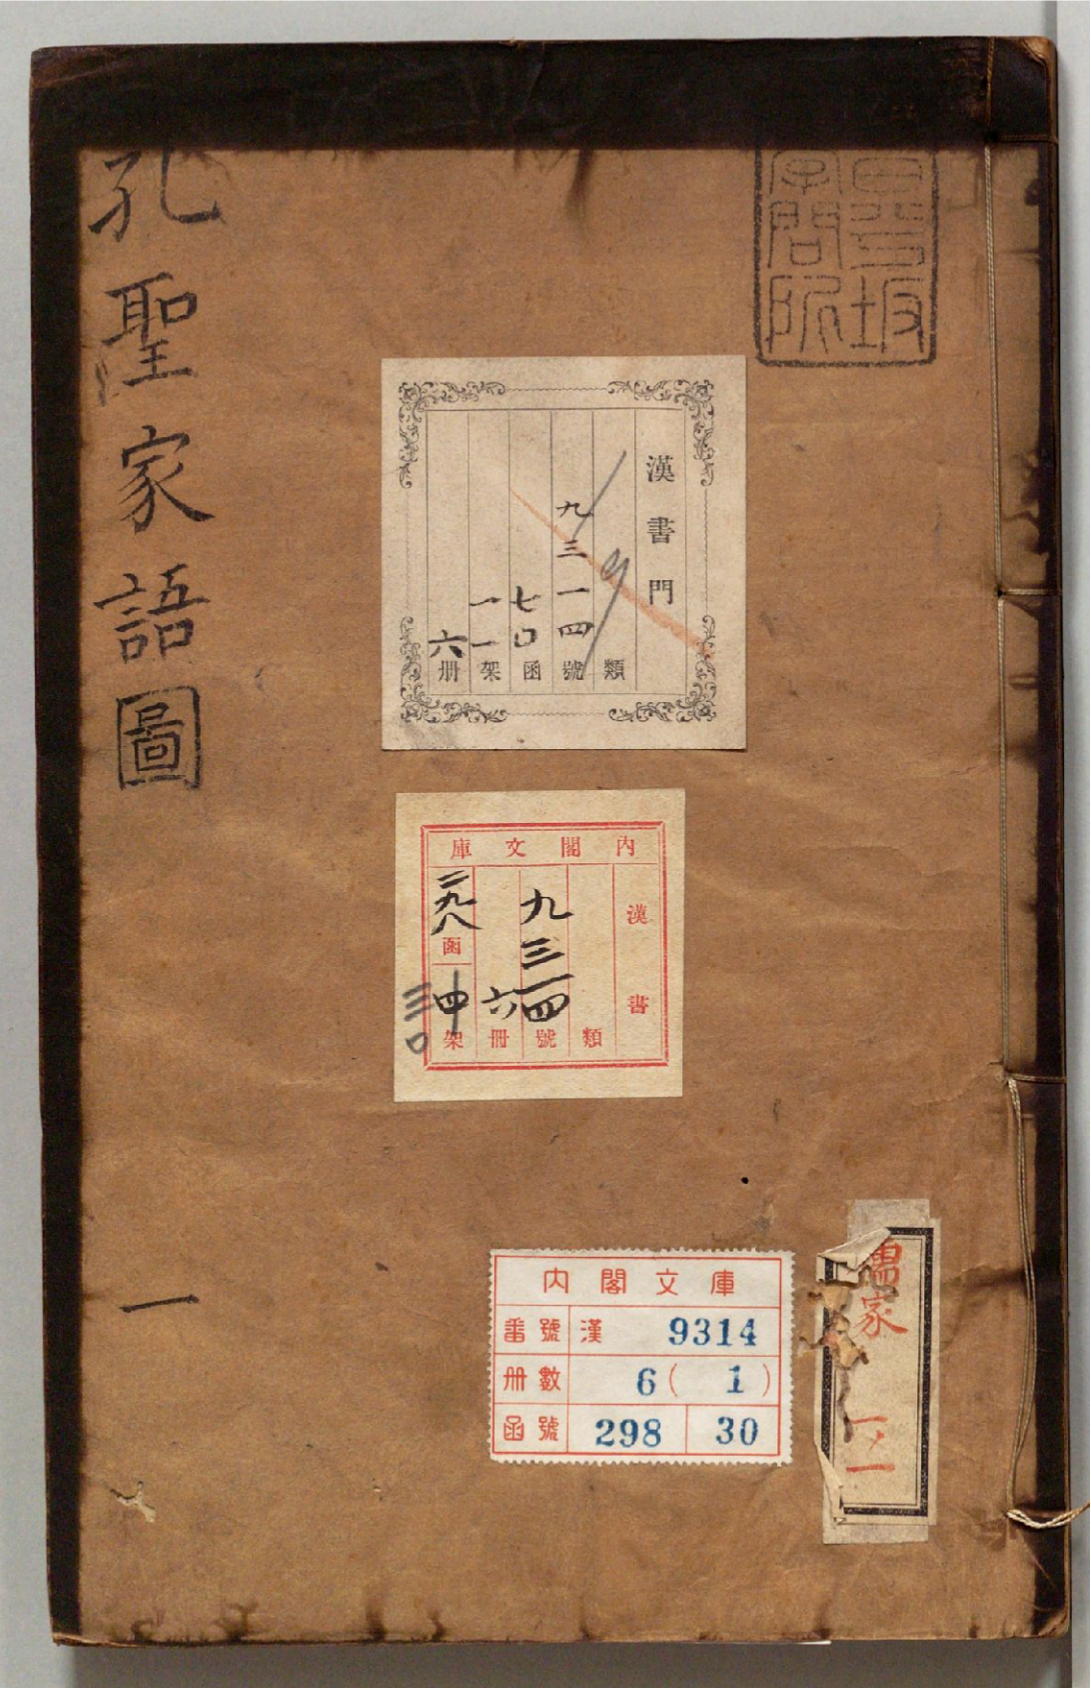 孔聖家語圖
一
昌平坂
學問院
漢書門
類
九三一四號
七〇函
一一架
六冊
9
內閣文庫
漢書
類
九三一四號
六冊
二九八函
四架
三〇
內閣文庫
番號 漢 9314
冊數 6(1)
函號 298 30
儒家